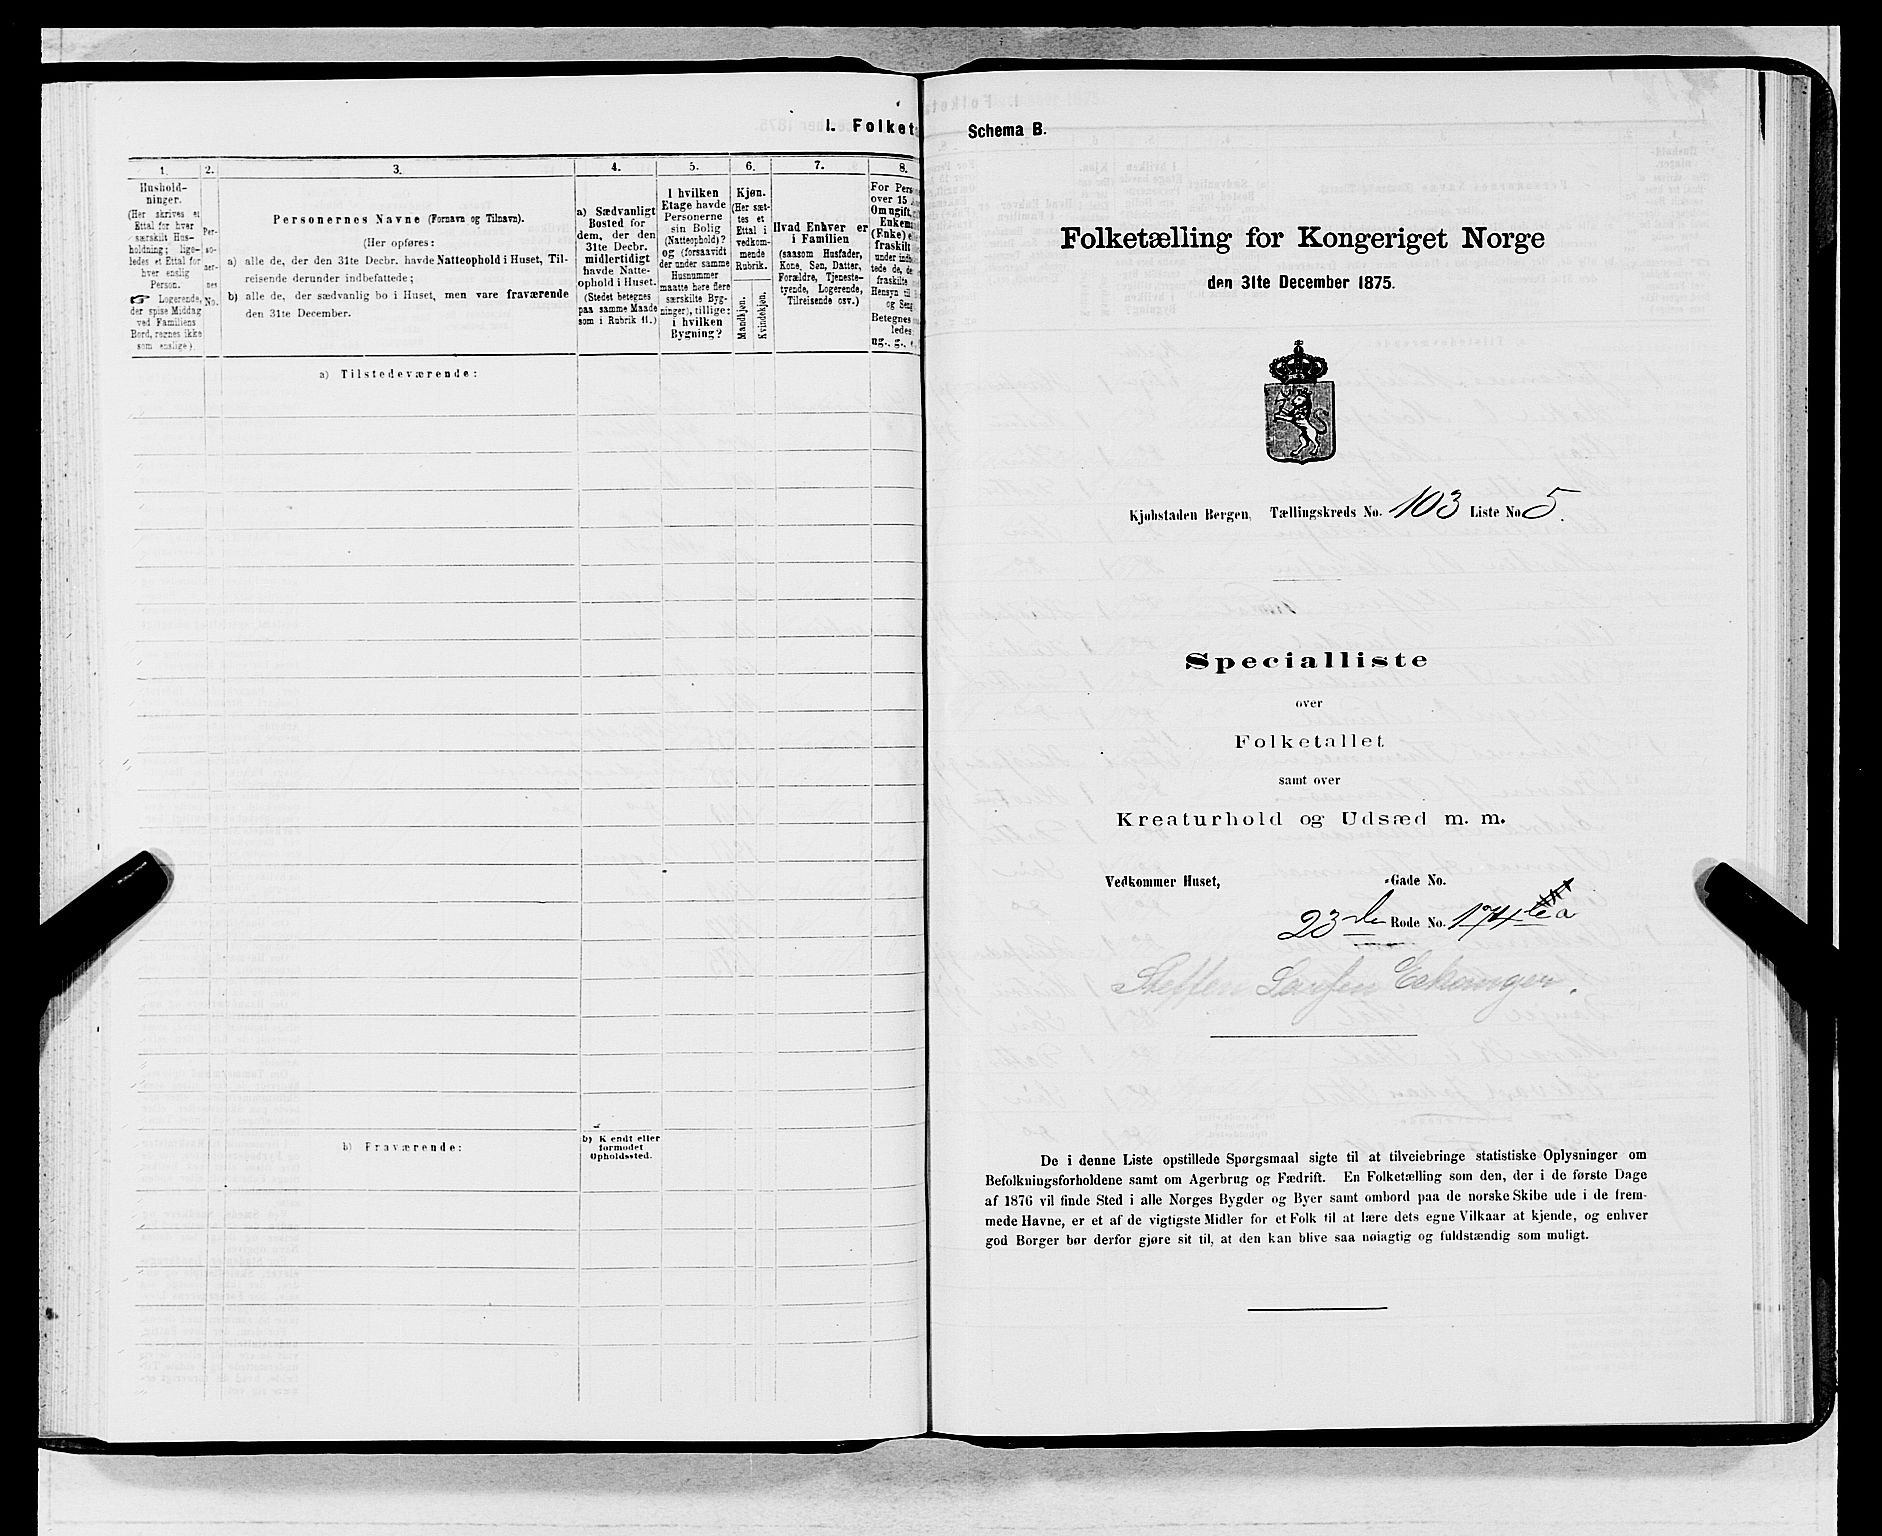 I. Folket
1.
2.
3.
4.
5.
6.
7.
8.
Hushold-
ninger.
(Her skrives et
Ettal for hver
særskilt Hus-
holdning; lige-
ledes et Ettal for
hver enslig
Person.
☞ Logerende,
der spise Middag
ved Familiens
Bord, regnes ikke
som enslige).
Per-
so-
ner-
nes
No.
Personernes Navne (Fornavn og Tilnavn).
(Her opføres:
a) alle de, der den 31te Decbr. havde Natteophold i Huset, Til-
reisende derunder indbefattede;
b) alle de, der sædvanlig bo i Huset, men vare fraværende
den 31te December.
a) Sædvanligt
Bosted for
dem, der den
31te Decbr.
midlertidigt
havde Natte-
ophold i Huset.
(Stedet betegnes
paa samme Maade
som i Rubrik 11.)
I hvilken
Etage havde
Personerne
sin Bolig
(Natteophold)?
og (forsaavidt
der under samme
Husnummer
maatte høre flere
særskilte Byg-
ninger), tillige:
i hvilken
Bygning?
Kjøn.
(Her sæt-
tes et
Ettal i
vedkom-
mende
Rubrik.
Mandkjøn.
Kvindekjøn.
Hvad Enhver er
i Familien
(saasom Husfader,
Kone, Søn, Datter,
Forældre, Tjeneste-
tyende, Logerende,
Tilreisende osv.)
For Pers
over 15
Om ugift,
Enkem
(Enke)
fraskilt
under indb
tede de, de
fraskilte
Hensyn til
og Seng
Betegnes
ledes
ug., g.,
a) Tilstedeværende:
b) Fraværende:
b) K endt eller
formodet
Opholdssted.
Schema B.
Folketælling for Kongeriget Norge
den 31te December 1875.
Kjøbstaden Bergen, Tællingskreds No. 103 Liste No 5.
Specialliste
over
Folketallet
samt over
Kreaturhold og Udsæd m. m.
Vedkommer Huset, -Gade No.
23de Rode No. 174 a
Steffen Larsen Eskanger.
De i denne Liste opstillede Spørgsmaal sigte til at tilveiebringe statistiske Oplysninger om
Befolkningsforholdene samt om Agerbrug og Fædrift. En Folketælling som den, der i de første Dage
af 1876 vil finde Sted i alle Norges Bygder og Byer samt ombord paa de norske Skibe ude i de frem-
mede Havne, er et af de vigtigste Midler for et Folk til at lære dets egne Vilkaar at kjende, og enhver
god Borger bør derfor gjøre sit til, at den kan blive saa nøiagtig og fuldstændig som muligt.